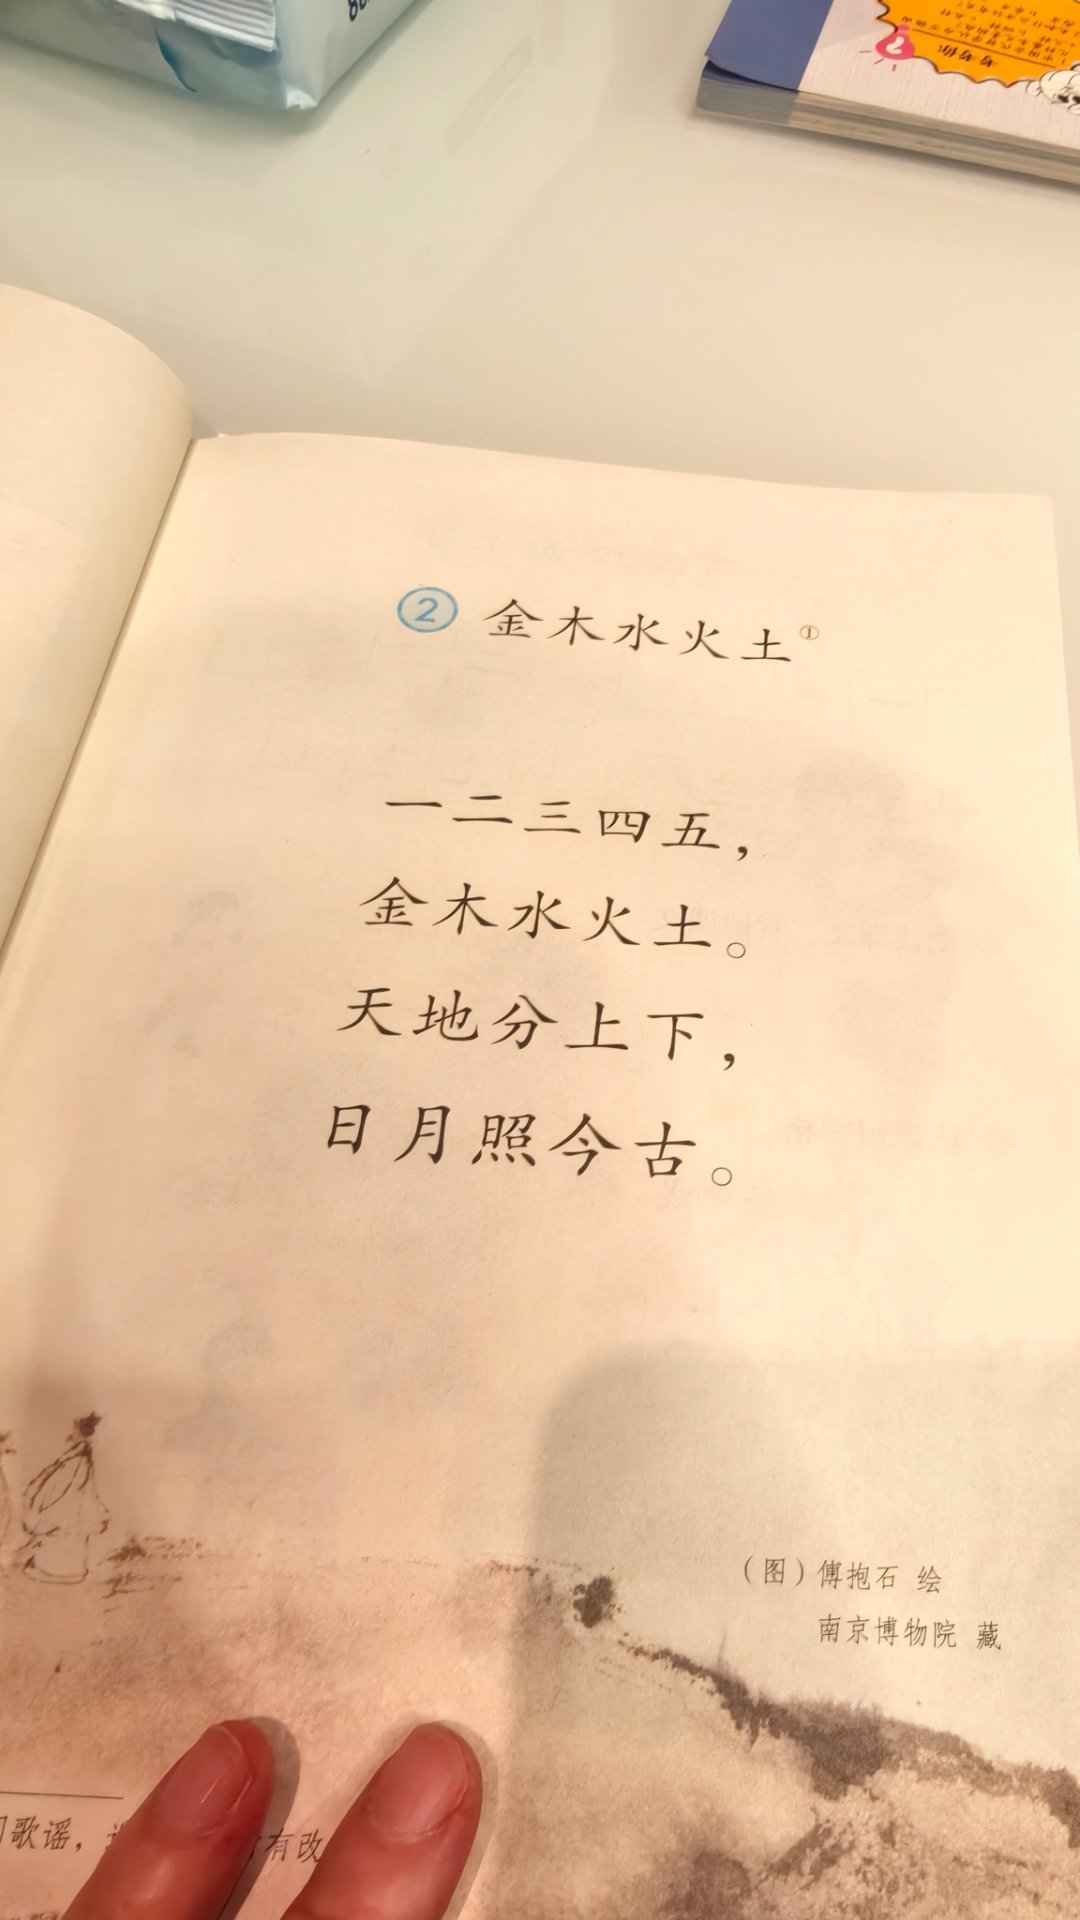 ② 金木水火土①
一二三四五，
金木水火土。
天地分上下，
日月照今古。
（图）傅抱石 绘
南京博物院 藏
歌谣，
有改
考考你